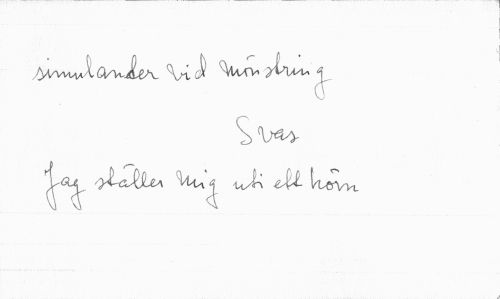 simulander vid mönstring
Svas
Jag ställer mig uti ett hörn